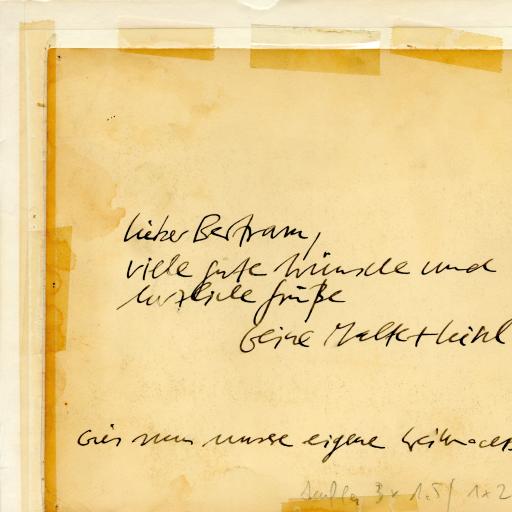 lieber Bertram,
viele gute Wünsche und
herzliche Grüße
Deine Malte +
nun unsere eigene Weihnachts
3 x 1.5 / 1 x 2